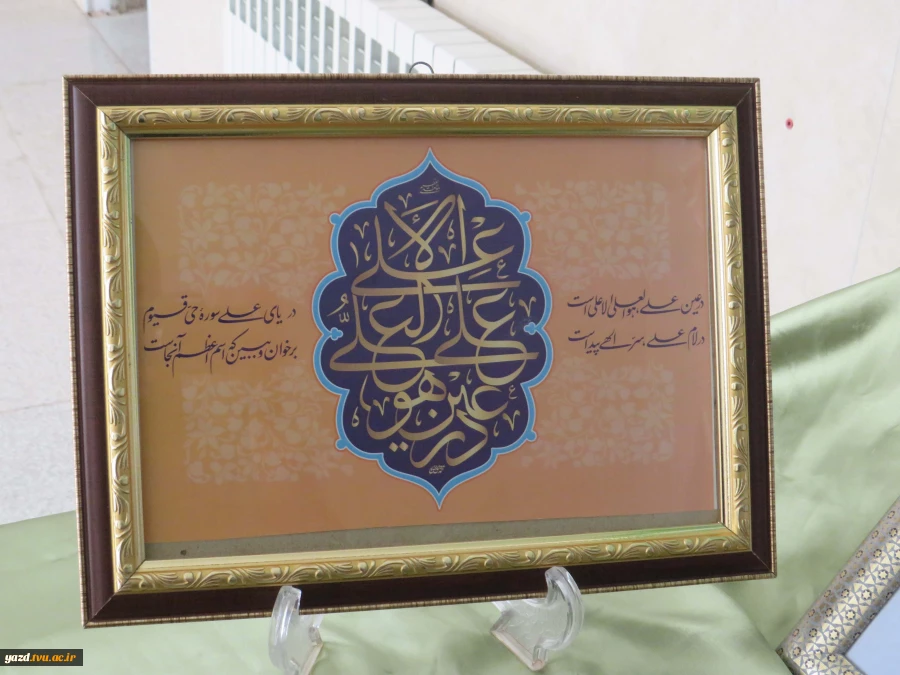 در عین علی هو العلی الاعلی است
در لام علی سر الهی پیداست
در یای علی سورهٔ حی قیوم
برخوان و ببین که اسم اعظم آنجاست
در عین علی هو العلی الاعلی
yazd.tvu.ac.ir